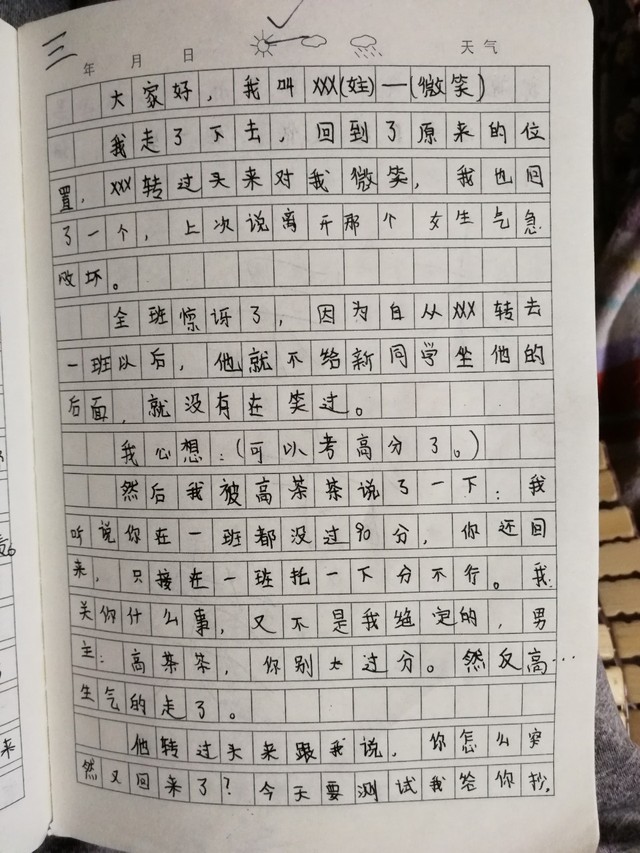 三
年 月 日 天气
大家好，我叫XXX(娃)—(微笑)
我走了下去，回到了原来的位
置，XXX转过头来对我微笑，我也回
了一个，上次说离开那个女生气急
败坏。
全班惊讶了，因为自从XXX转去
一班以后，他就不给新同学坐他的
后面，就没有在笑过。
我心想：(可以考高分了。)
然后我被高茶茶说了一下：我
听说你在一班都没过90分，你还回
来，只接在一班托一下分不行。我：
关你什么事，又不是我绝定的，男
主：高茶茶，你别太过分。然反高…
生气的走了。
他转过头来跟我说，你怎么突
然又回来了？今天要测试我给你抄，
来